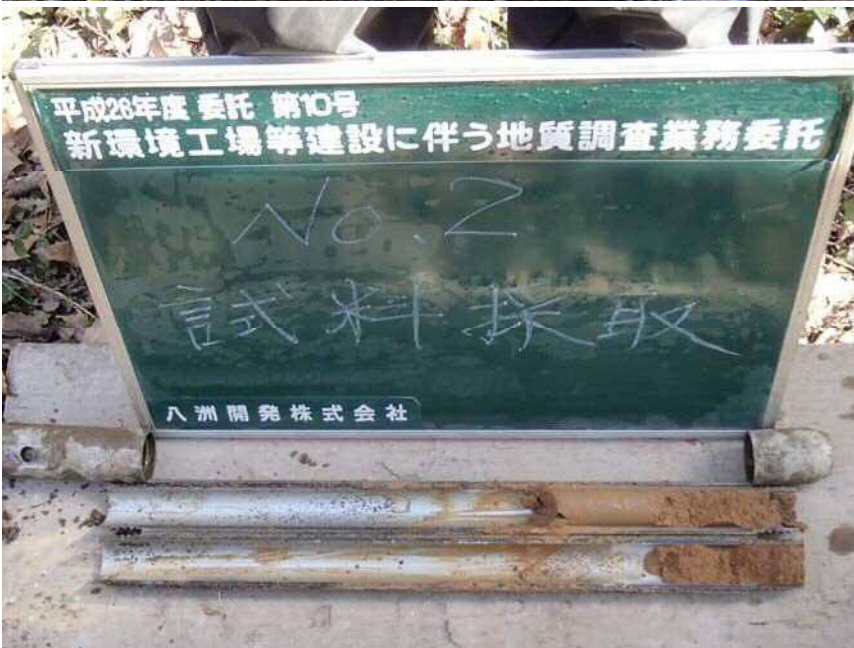 平成26年度 委託 第10号
新環境工場等建設に伴う地質調査業務委託
No.2
試料採取
八洲開発株式会社